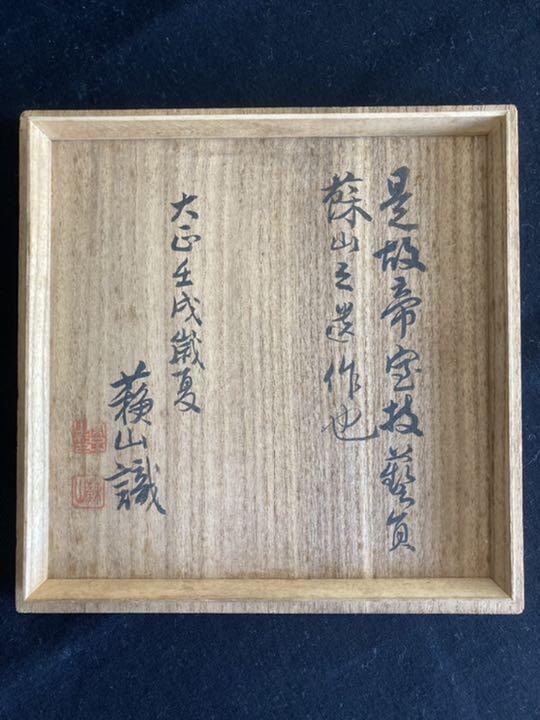 是故帝室技藝員
蘓山之遺作也
大正壬戌歳夏
蘓山識